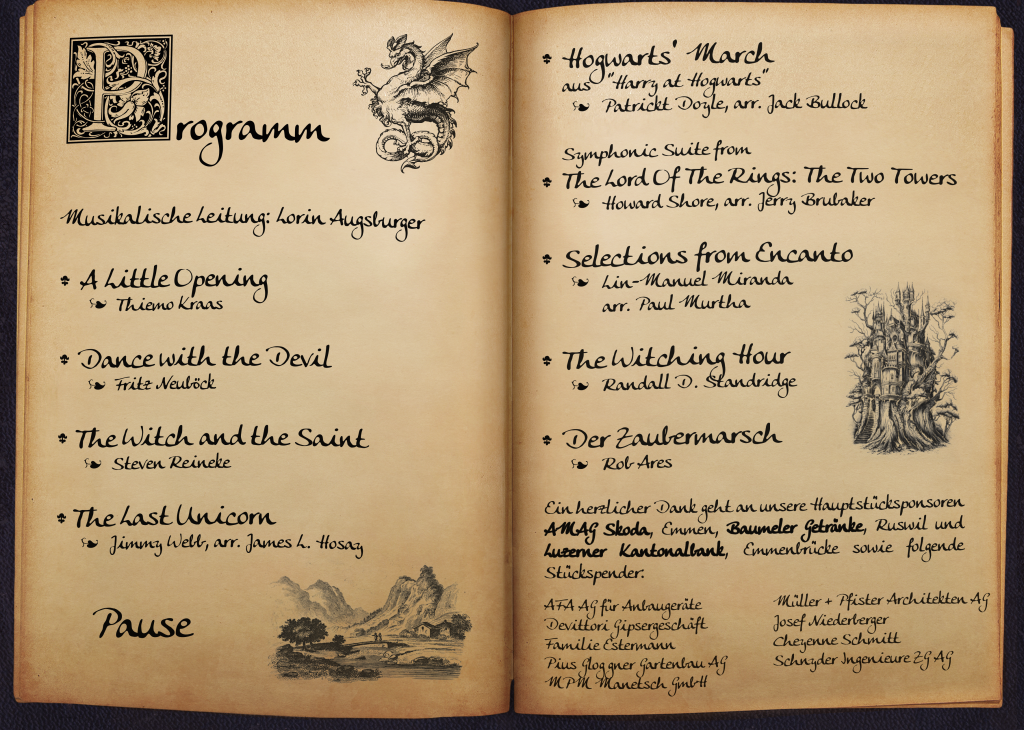 Programm
Musikalische Leitung: Lorin Augsburger
A Little Opening
Thiemo Kraas
Dance with the Devil
Fritz Neuböck
The Witch and the Saint
Steven Reineke
The Last Unicorn
Jimmy Webb, arr. James L. Hosay
Pause
Hogwarts' March
aus "Harry at Hogwarts"
Patrickt Doyle, arr. Jack Bullock
Symphonic Suite from
The Lord Of The Rings: The Two Towers
Howard Shore, arr. Jerry Brubaker
Selections from Encanto
Lin-Manuel Miranda
arr. Paul Murtha
The Witching Hour
Randall D. Standridge
Der Zaubermarsch
Rob Ares
Ein herzlicher Dank geht an unsere Hauptstücksponsoren
AMAG Skoda, Emmen, Baumeler Getränke, Ruswil und
Luzerner Kantonalbank, Emmenbrücke sowie folgende
Stückspender:
AFA AG für Anbaugeräte
Devittori Gipsergeschäft
Familie Estermann
Pius Gloggner Gartenbau AG
MPM Manetsch GmbH
Müller + Pfister Architekten AG
Josef Niederberger
Cheyenne Schmitt
Schnyder Ingenieure ZG AG